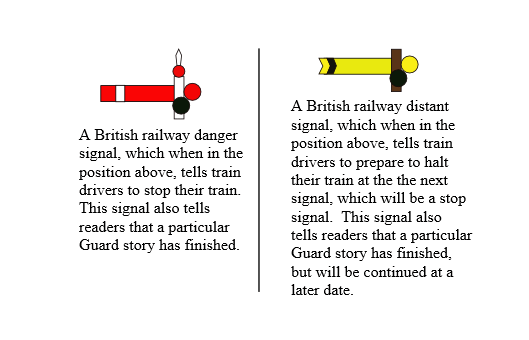 A British railway danger
signal, which when in the
position above, tells train
drivers to stop their train.
This signal also tells
readers that a particular
Guard story has finished.
A British railway distant
signal, which when in the
position above, tells train
drivers to prepare to halt
their train at the the next
signal, which will be a stop
signal.  This signal also
tells readers that a particular
Guard story has finished,
but will be continued at a
later date.